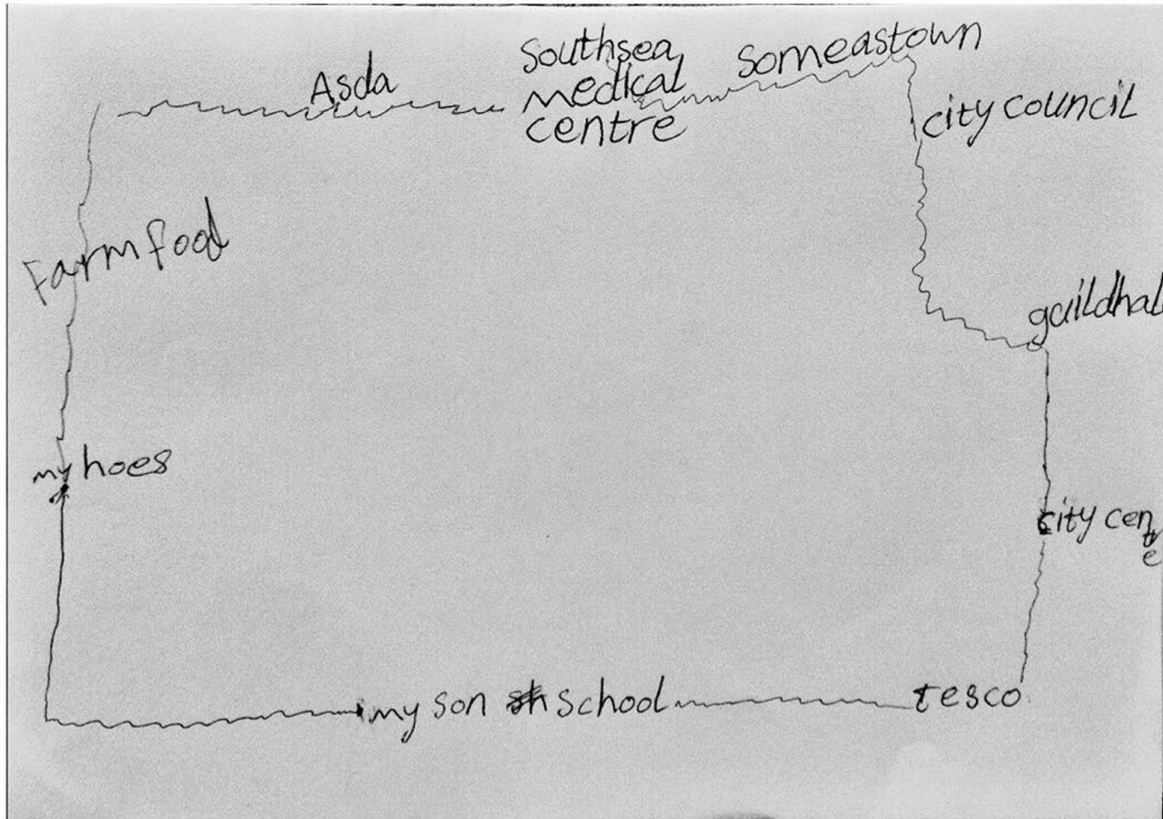 Asda
Southsea
medical
centre
Someastown
city council
Farm food
guildhal
my hoes
city cen
te
my son school
tesco